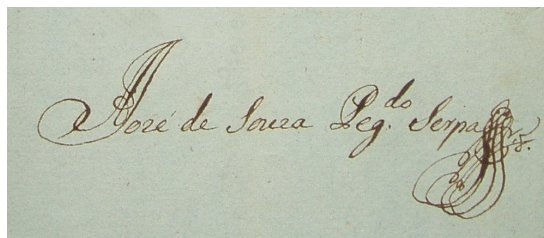 José de Souza Peg.do Serpa